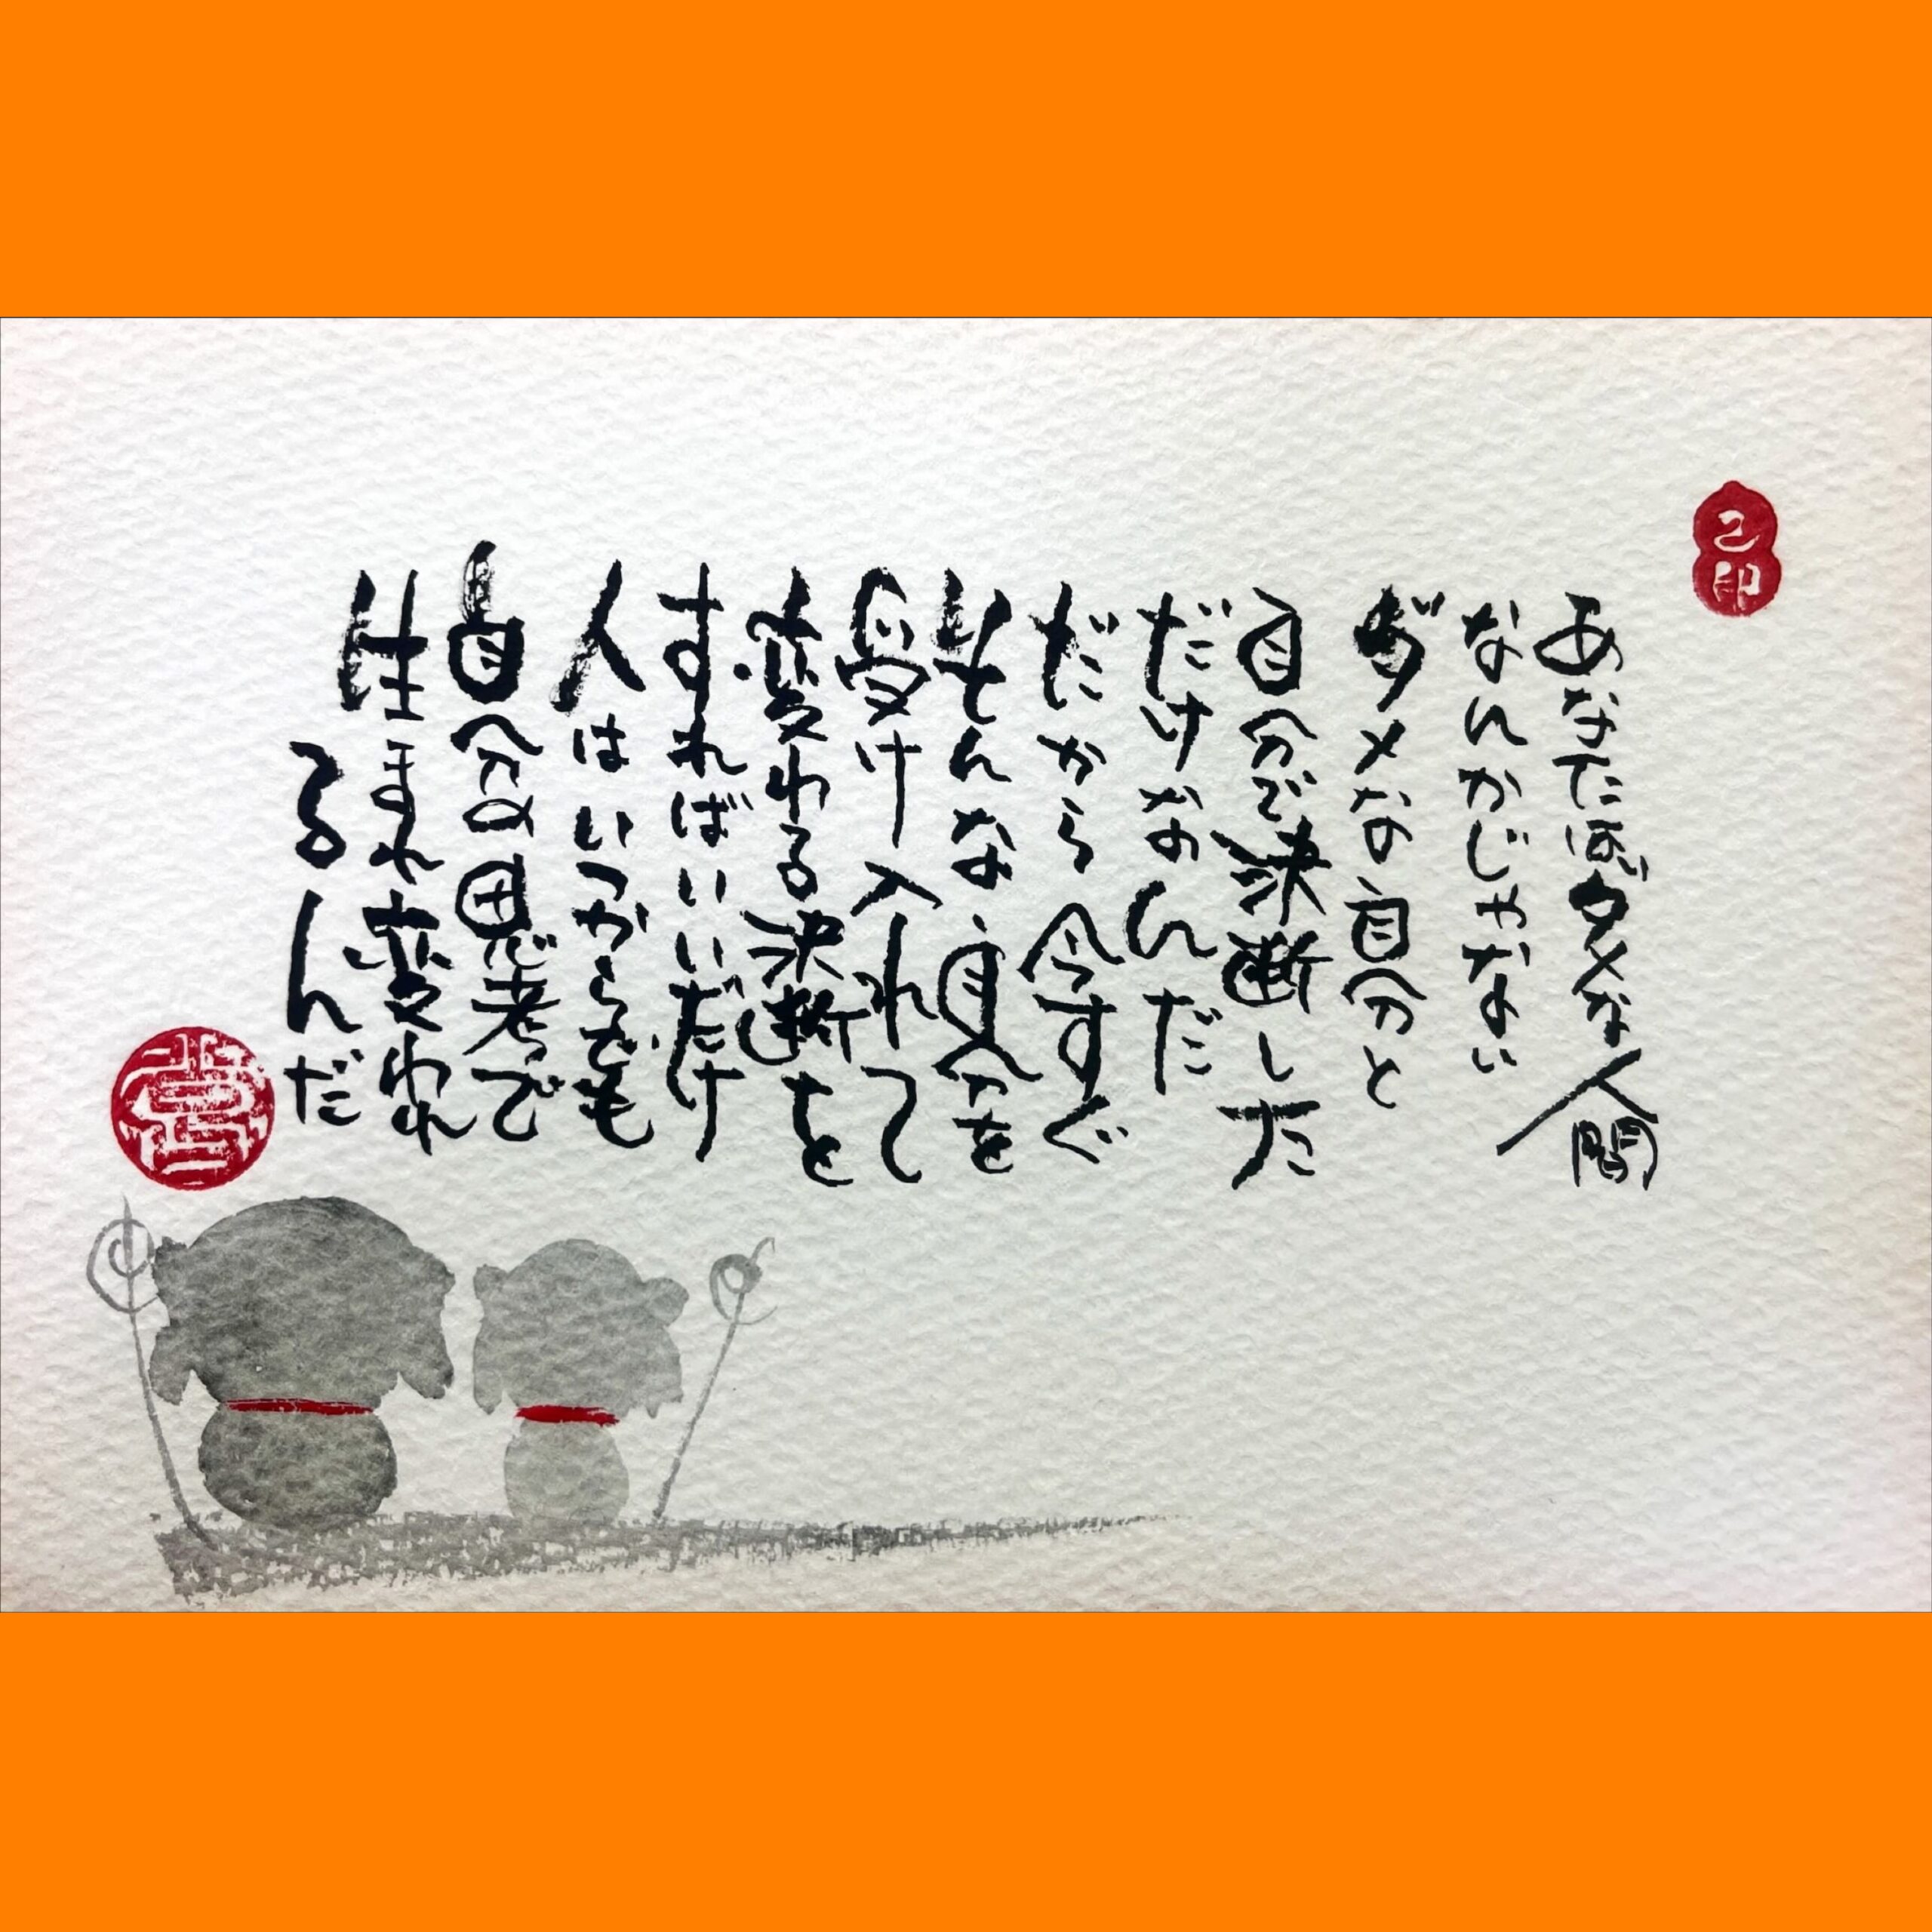 己印
あなたはダメな人間
なんかじゃない
ダメな自分と
自分で決断した
だけなんだ
だから今すぐ
そんな自分を
受け入れて
変わる決断を
すればいいだけ
人はいつからでも
自分の思考で
生まれ変われ
るんだ